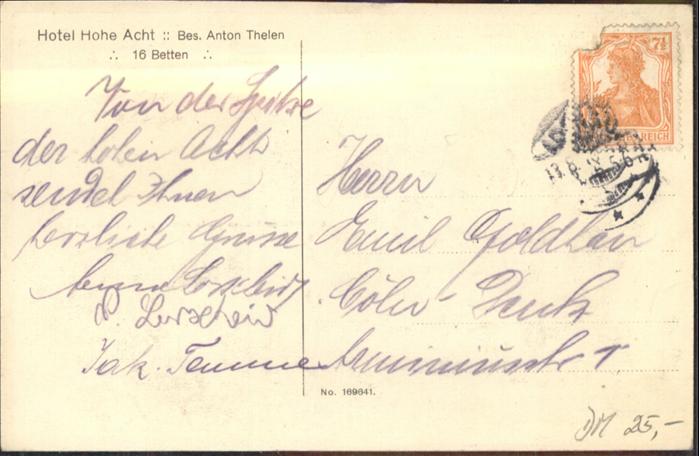 Hotel Hohe Acht :: Bes. Anton Thelen
∴ 16 Betten ∴
Von der Spitze
der hohen Acht
sendet Ihnen
herzliche Grüsse
Jak.
Herrn
Emil Goldhan
Cöln-Deutz
Arminiusstr
7½
REICH
No. 169641.
DM 25,-